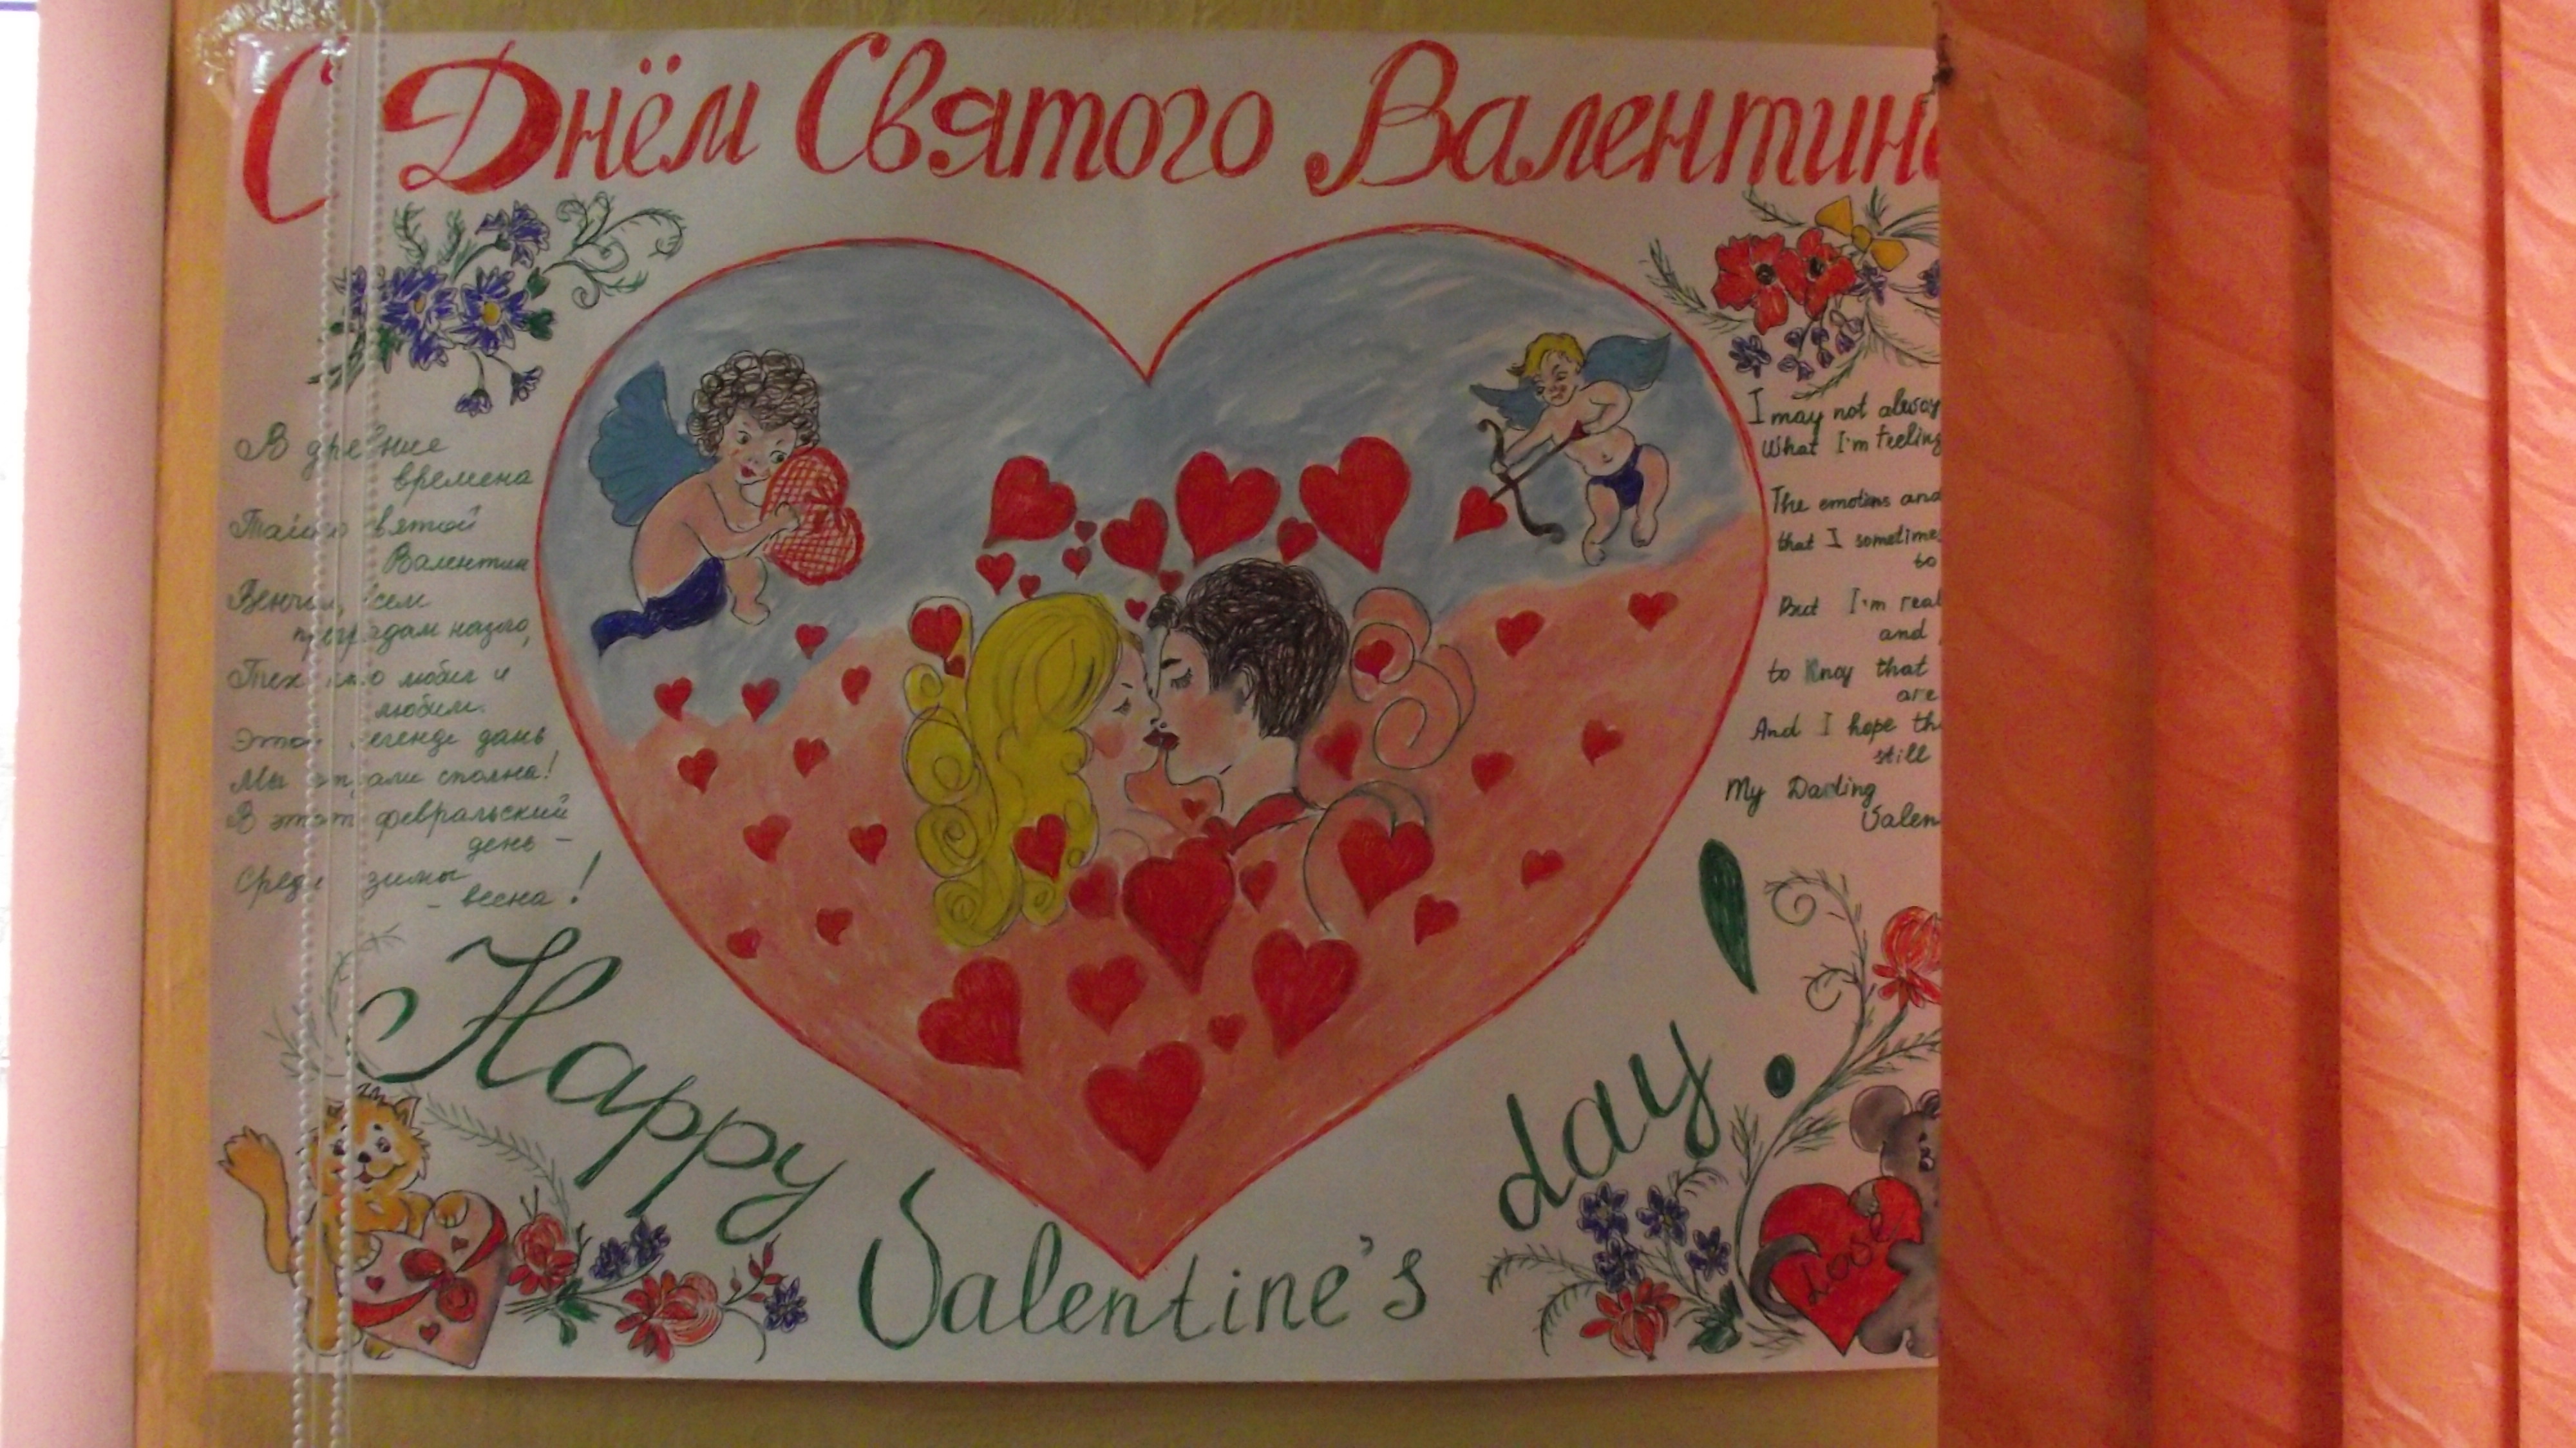 С Днём Святого Валентина
В древние
времена
Тайно святой
Валентин
Венчал, всем
преградам назло,
Тех кто любил и
любим.
Этой легенде дань
Мы отдали сполна!
В этот февральский
день –
Среди зимы
– весна!
I may not alway
What I'm feeling
The emotions and
that I sometimes
to
But I'm real
and
to Knoy that
are
And I hope th
still
My Darling
Valen
Happy Valentine's day!
Love